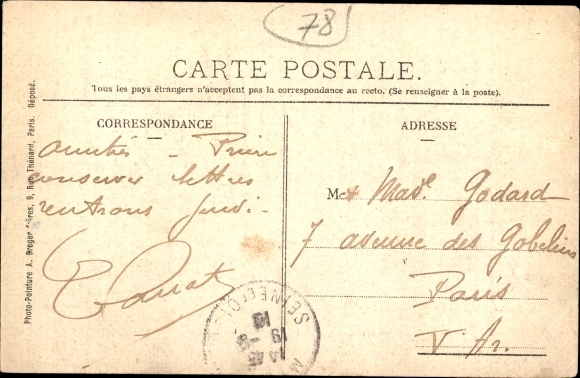 78
CARTE POSTALE.
Tous les pays étrangers n'acceptent pas la correspondance au recto. (Se renseigner à la poste).
CORRESPONDANCE
Amitiés – Prière
conserver lettres
rentrons jeudi.
ADRESSE
M et Mad. Godard
7 avenue des Gobelins
Paris
V Ar.
Photo-Peinture A. Breger Frères, 9, Rue Thénard, Paris. Déposé.